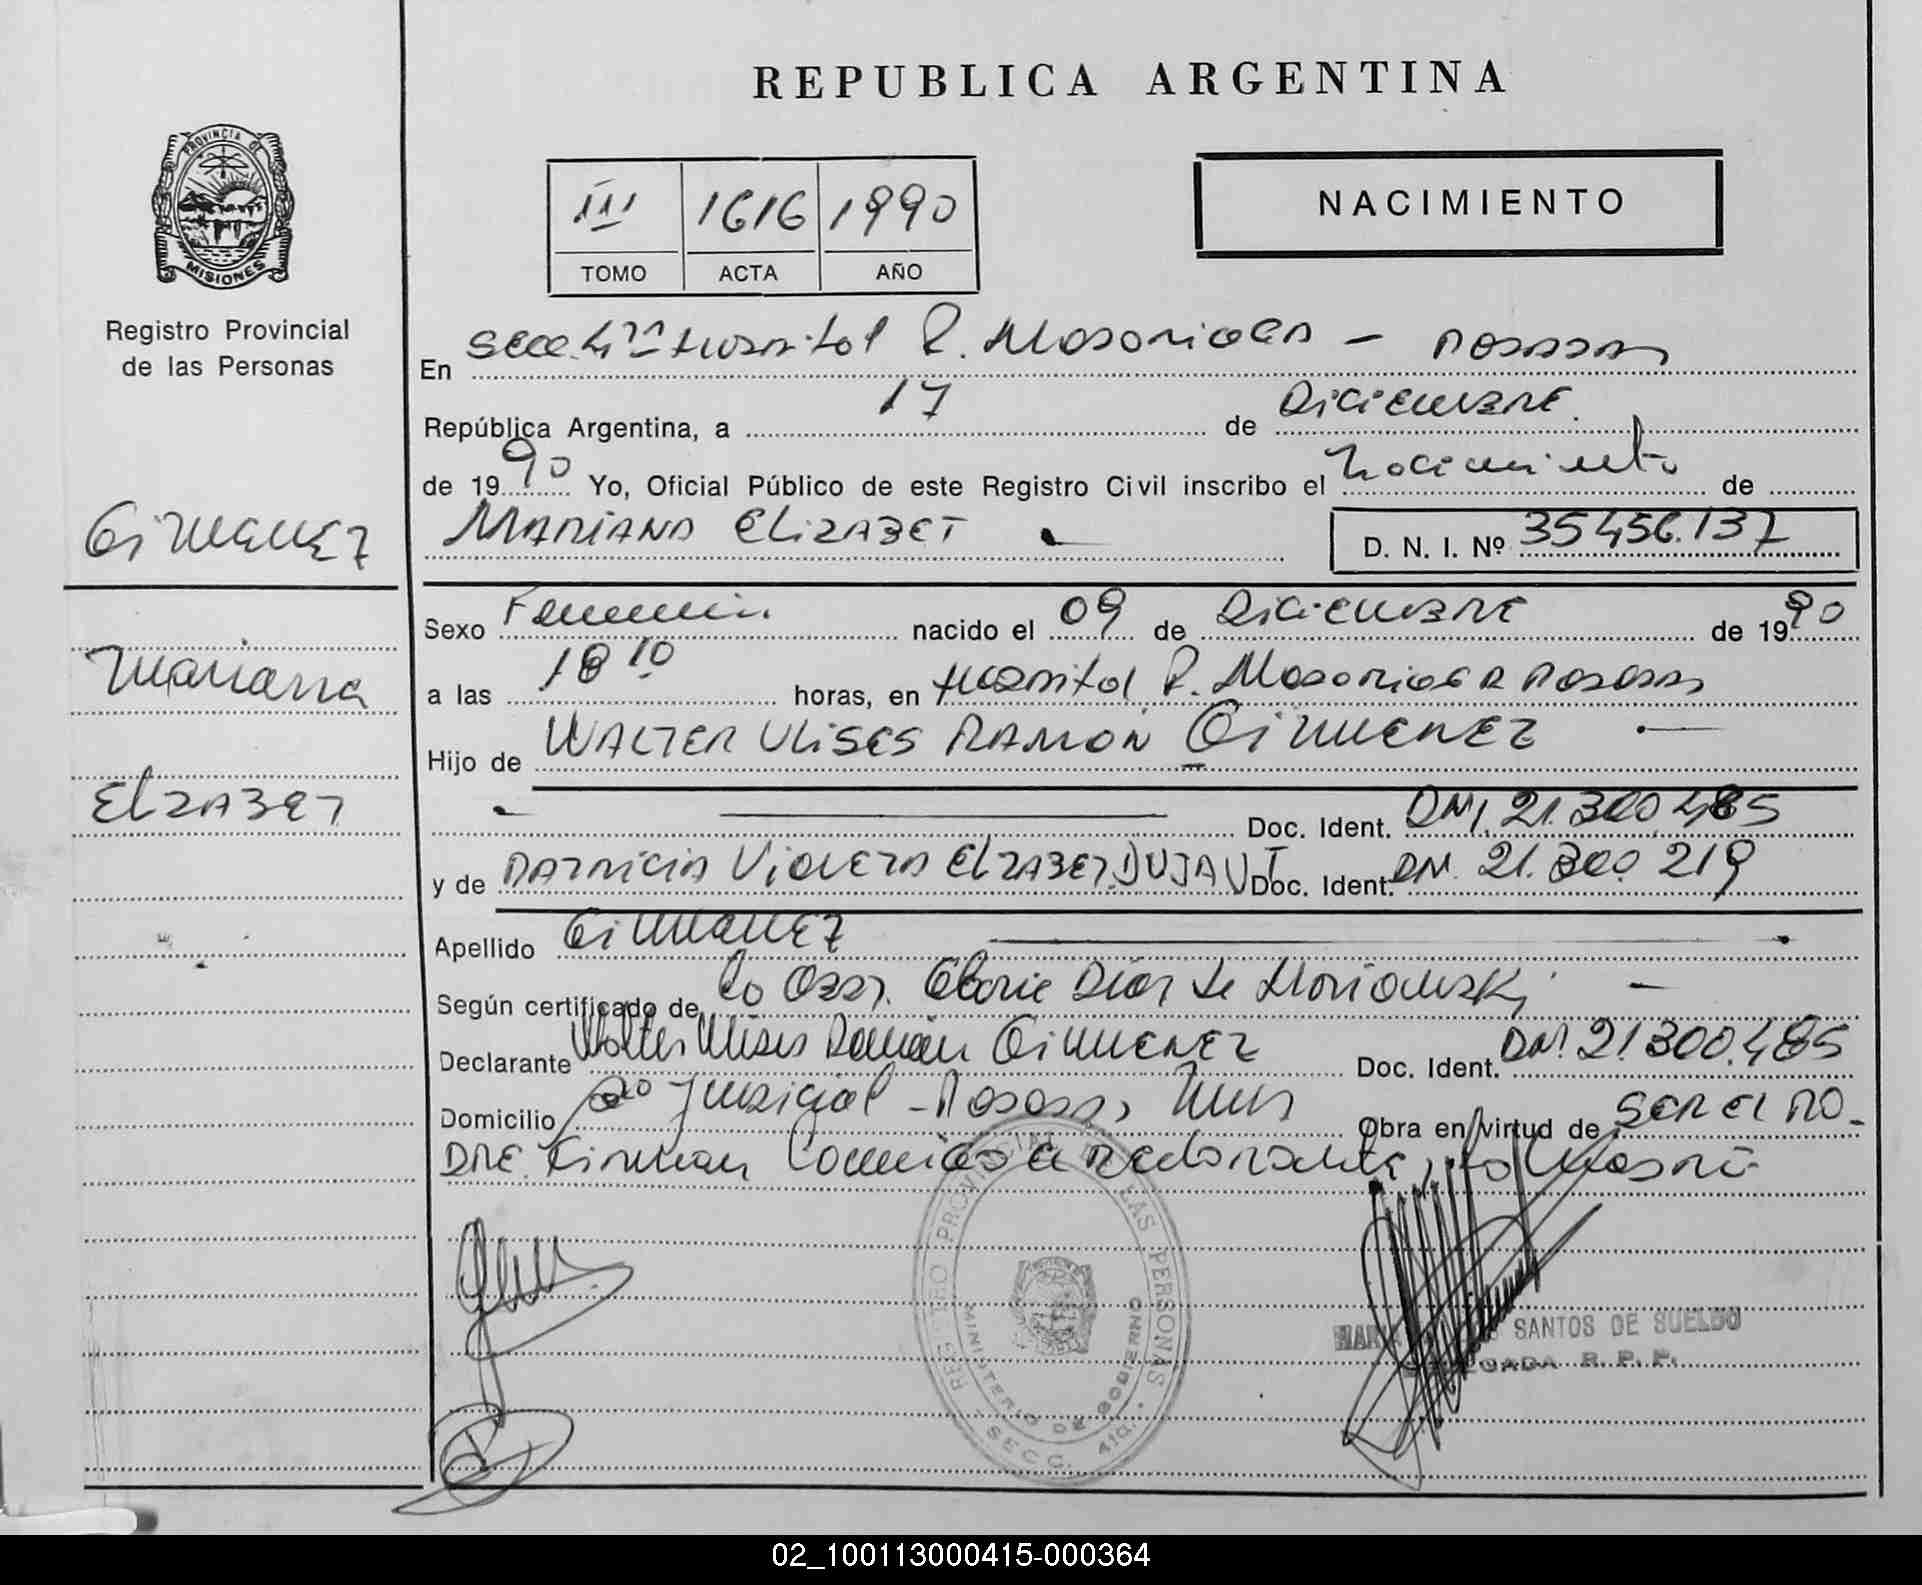 REPUBLICA ARGENTINA
PROVINCIA DE
MISIONES
Registro Provincial
de las Personas
III 1616 1990
TOMO ACTA AÑO
NACIMIENTO
En Secc. 4ta Hospital R. Madariaga - Posadas
República Argentina, a 17 de Diciembre
de 1990 Yo, Oficial Público de este Registro Civil inscribo el Nacimiento de
Mariana Elizabet D. N. I. Nº 35456.137
Gimenez
Mariana
Elizabet
Sexo Femenin. nacido el 09 de Diciembre de 1990
a las 18 10 horas, en Hospital R. Madariaga Posadas
Hijo de Walter Ulises Ramon Gimenez
Doc. Ident. DNI. 21.300.485
y de Patricia Violeta Elizabet DUJAUT Doc. Ident. DNI. 21.300.219
Apellido Gimenez
Según certificado de la Obst. Gloria Diaz de
Declarante Walter Ulises Ramón Gimenez Doc. Ident. DNI. 21300.485
Domicilio Judicial - Posadas, Mnes Obra en virtud de ser el PA-
DRE. Firman el declarante,
REGISTRO PROVINCIAL DE LAS PERSONAS
MINISTERIO DE GOBIERNO
SECC. 4ta.
SANTOS DE SUELDO
R. P. P.
02_100113000415-000364